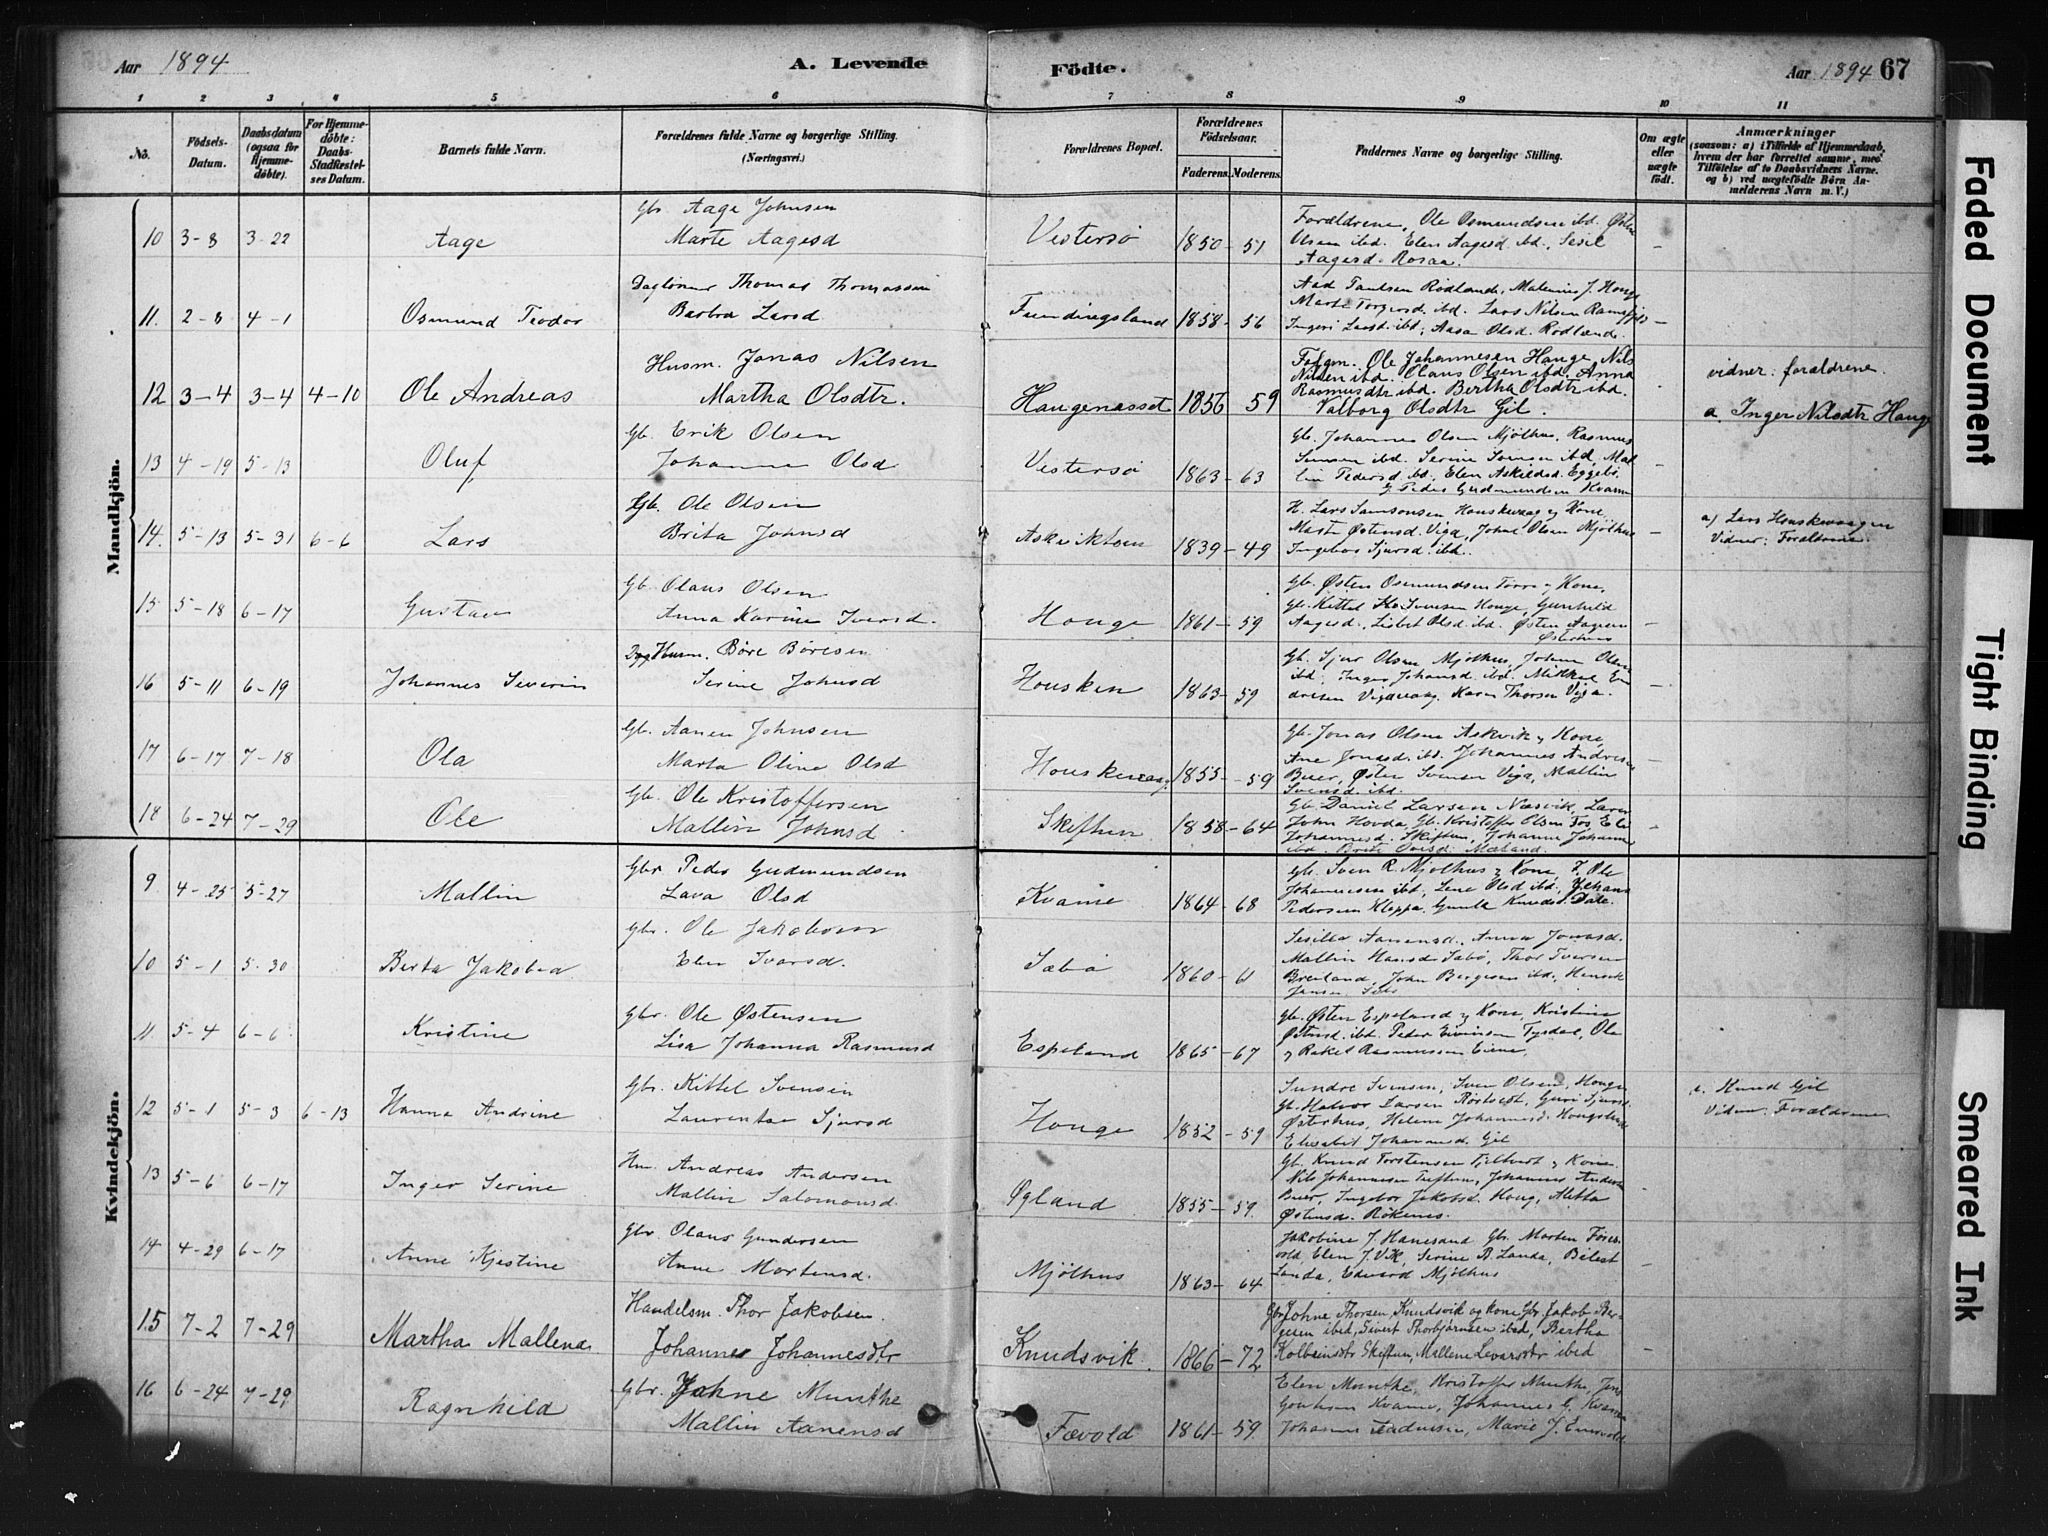 Aar 1894
A. Levende
Födte.
Aar 1894 67
1 2 3 4 5 6 7 8 9 10 11
No.
Födsels-Datum.
Daabsdatum (ogsaa for Hjemme-döbte).
For Hjemme-döbte: Daabs-Stadfæstel-ses Datum.
Barnets fulde Navn.
Forældrenes fulde Navne og borgerlige Stilling.
(Næringsvei.)
Forældrenes Bopæl.
Forældrenes Födselsaar.
Faderens. Moderens.
Faddernes Navne og borgerlige Stilling.
Om ægte eller uægte födt.
Anmærkninger
(saasom: a) i Tilfælde af Hjemmedaab, hvem der har forrettet samme, med Tilföielse af to Daabsvidners Navne, og b) ved uægtefödte Börn An-melderens Navn m. V.)
Mandkjön.
10 3-8 3-22 Aage
Gbr Aage Johnsen
Marte Aagesd
Vestersø 1850-51
Forældrene, Ole Osmundsen ibd. Østen
Olsen ibd. Elen Aagesd. ibd., Sesil
Aagesd. Rosaa.
11. 2-8 4-1 Osmund Teodor
Daglönner Thomas Thomassen
Barbra Larsd
1858-56
Aad Paulsen Rödland, Malenius J. Houge
Marte Torgersd. ibd. Lars Nilsen
Ingeri Larsd. ibd, Aasa Olsd. Rödland.
12 3-4 3-4 4-10 Ole Andreas
Husm. Jonas Nilsen
Martha Olsdtr.
Haugenasset 1856 59
Ole Johannesen Hauge, Nils
Nilsen ibd. Olaus Olsen ibd, Anna
Rasmusdtr ibd. Bertha Olsdtr ibd.
Valborg Olsdtr Gil.
vidner: forældrene.
a. Inger Nilsdtr Hauge
13 4-19 5-13 Oluf
Gb. Erik Olsen
Johanne Olsd
Vestersø 1863-63
Gb. Johannes Olsen Mjølhus, Rasmus
ibd. Serine Svensen ibd, Mal-
lin Pedersd. ibd, Elen Askildsd. Eggebö
Peder Gudmundsen Kvame
14. 5-13 5-31 6-6 Lars
Gb. Ole Olsen
Brita Johnsd
Askviktøen 1839-49
H. Lars Samsonsen Houskevaag og Kone,
Marte Østensd. Viga, John Olsen Mjølhus
Ingebor Sjursd. ibd.
a) Lars Houskevaagen
Vidner: Forældrene
15 5-18 6-17 Gustav
Gb. Olaus Olsen
Anna Karine Iversd.
Houge 1861-59
Gb. Østen Osmundsen Torro og Kone,
Gb. Kittel Svensen Houge, Gunhild
Aagesd., Lisbet Olsd. ibd. Østen Aagesen
Østerhus
16 5-11 6-19 Johannes Severin
Husm. Børe Børesen
Serine Johnsd
Housken 1863-59
Gb. Sjur Olsen Mjølhus, Johan Olsen
ibd, Inger Johansd. ibd. Mikkel En-
dresen Vigavaag, Karen Thorsen Viga.
17 6-17 7-18 Ola
Gb. Aanen Johnsen
Marta Oline Olsd
Houskevaag 1855-59
Gb. Jonas Olsen Askvik og Kone,
Ane Jonasd. ibd. Johannes Andresen
Buer, Østen Svensen Viga, Mallin
Svensd. ibd.
18 6-24 7-29 Ole
Gb. Ole Kristoffersen
Mallin Johnsd
Skiftun 1858-64
Gb. Daniel Larsen Næsvik, Lars
John Hovda, Gb. Kristoffer Olsen Fos, Eli
Johannesd. Skiftun, Johanne Johanne
ibd. Brita Mæland.
Kvindekjön.
9 4-25 5-27 Mallin
Gbr Peder Gudmundsen
Lava Olsd
Kvame 1864-68
Gb. Sven R. Mjølhus og Kone, Ole
Johannesen ibd, Lene Olsd ibd, Johans
Pedersen Kleppa, Gunla Knudsd. Dale.
10 5-1 5-30 Berta Jakobea
Gbr. Ole Jakobsen
Elen Ivarsd.
Sæbø 1860-61
Sesilie Aanensd., Anna Jonasd.
Mallin Hansd. Sæbø, Thor Iversen
Breiland, John Bergesen ibd, Henrik
Jansen
11. 5-4 6-6 Kristine
Gbr. Ole Østensen
Lisa Johanna Rasmusd
Espeland 1865-67
Gb. Østen Espeland og Kone, Kristine
Østensd. ibd. Peder Eivinsen Tysdal, Ole
og Rakel Rasmussen Eiene,
12 5-1 5-3 6-13 Hanna Andrine
Gbr. Kittel Svensen
Laurentse Sjursd
Houge 1852-59
Sundre Svensen, Sven Olsen, Houge
Gb. Halvor Larsen Röstvedt, Guri Sjursd.
Østerhus, Helene Johannesd. Hougstad
Elisabet Johannesd. Gil
a. Knud Gil
Vidner: Forældrene
13 5-6 6-17 Inger Serine
Hm. Andreas Andersen
Mallin Salomonsd.
Øgland 1855-59.
Gb. Knud Torstensen Tjeltveit og Kone.
Nils Johannesen Tuftene, Johannes Anders
Buer, Ingebor Jakobsd. Houg, Aletta
Østensd. Røkenes.
14 4-29 6-17 Anne Kjestine
Gbr. Olaus Gundersen
Anne Mortensd.
Mjølhus 1863-64
Jakobine J. Hanesand Gbr. Morten Föres-
vold Elen J. Vik, Serine B. Landa, Bilest
Landa, Edvard Mjølhus
15 7-2 7-29 Martha Mallena
Handelsm. Thor Jakobsen.
Johanne Johannesdtr
Knudsvik. 1866-72
Gbr Johne Thorsen Knudsvik og kone Gbr. Jakob Ber-
gesen ibid, Sivert Thorbjørnsen ibid, Bertha
Kolbeinsdtr Skiftun, Mallene Levarsdtr ibid
16 6-24 7-29 Ragnhild
Gbr. Johne Munthe
Mallin Aanensd
Fævold 1861-59.
Elen Munthe, Kristoffer Munthe, Jens
Kvame, Johannes G. Kvame
Johanne Marie J.
Faded Document
Tight Binding
Smeared Ink